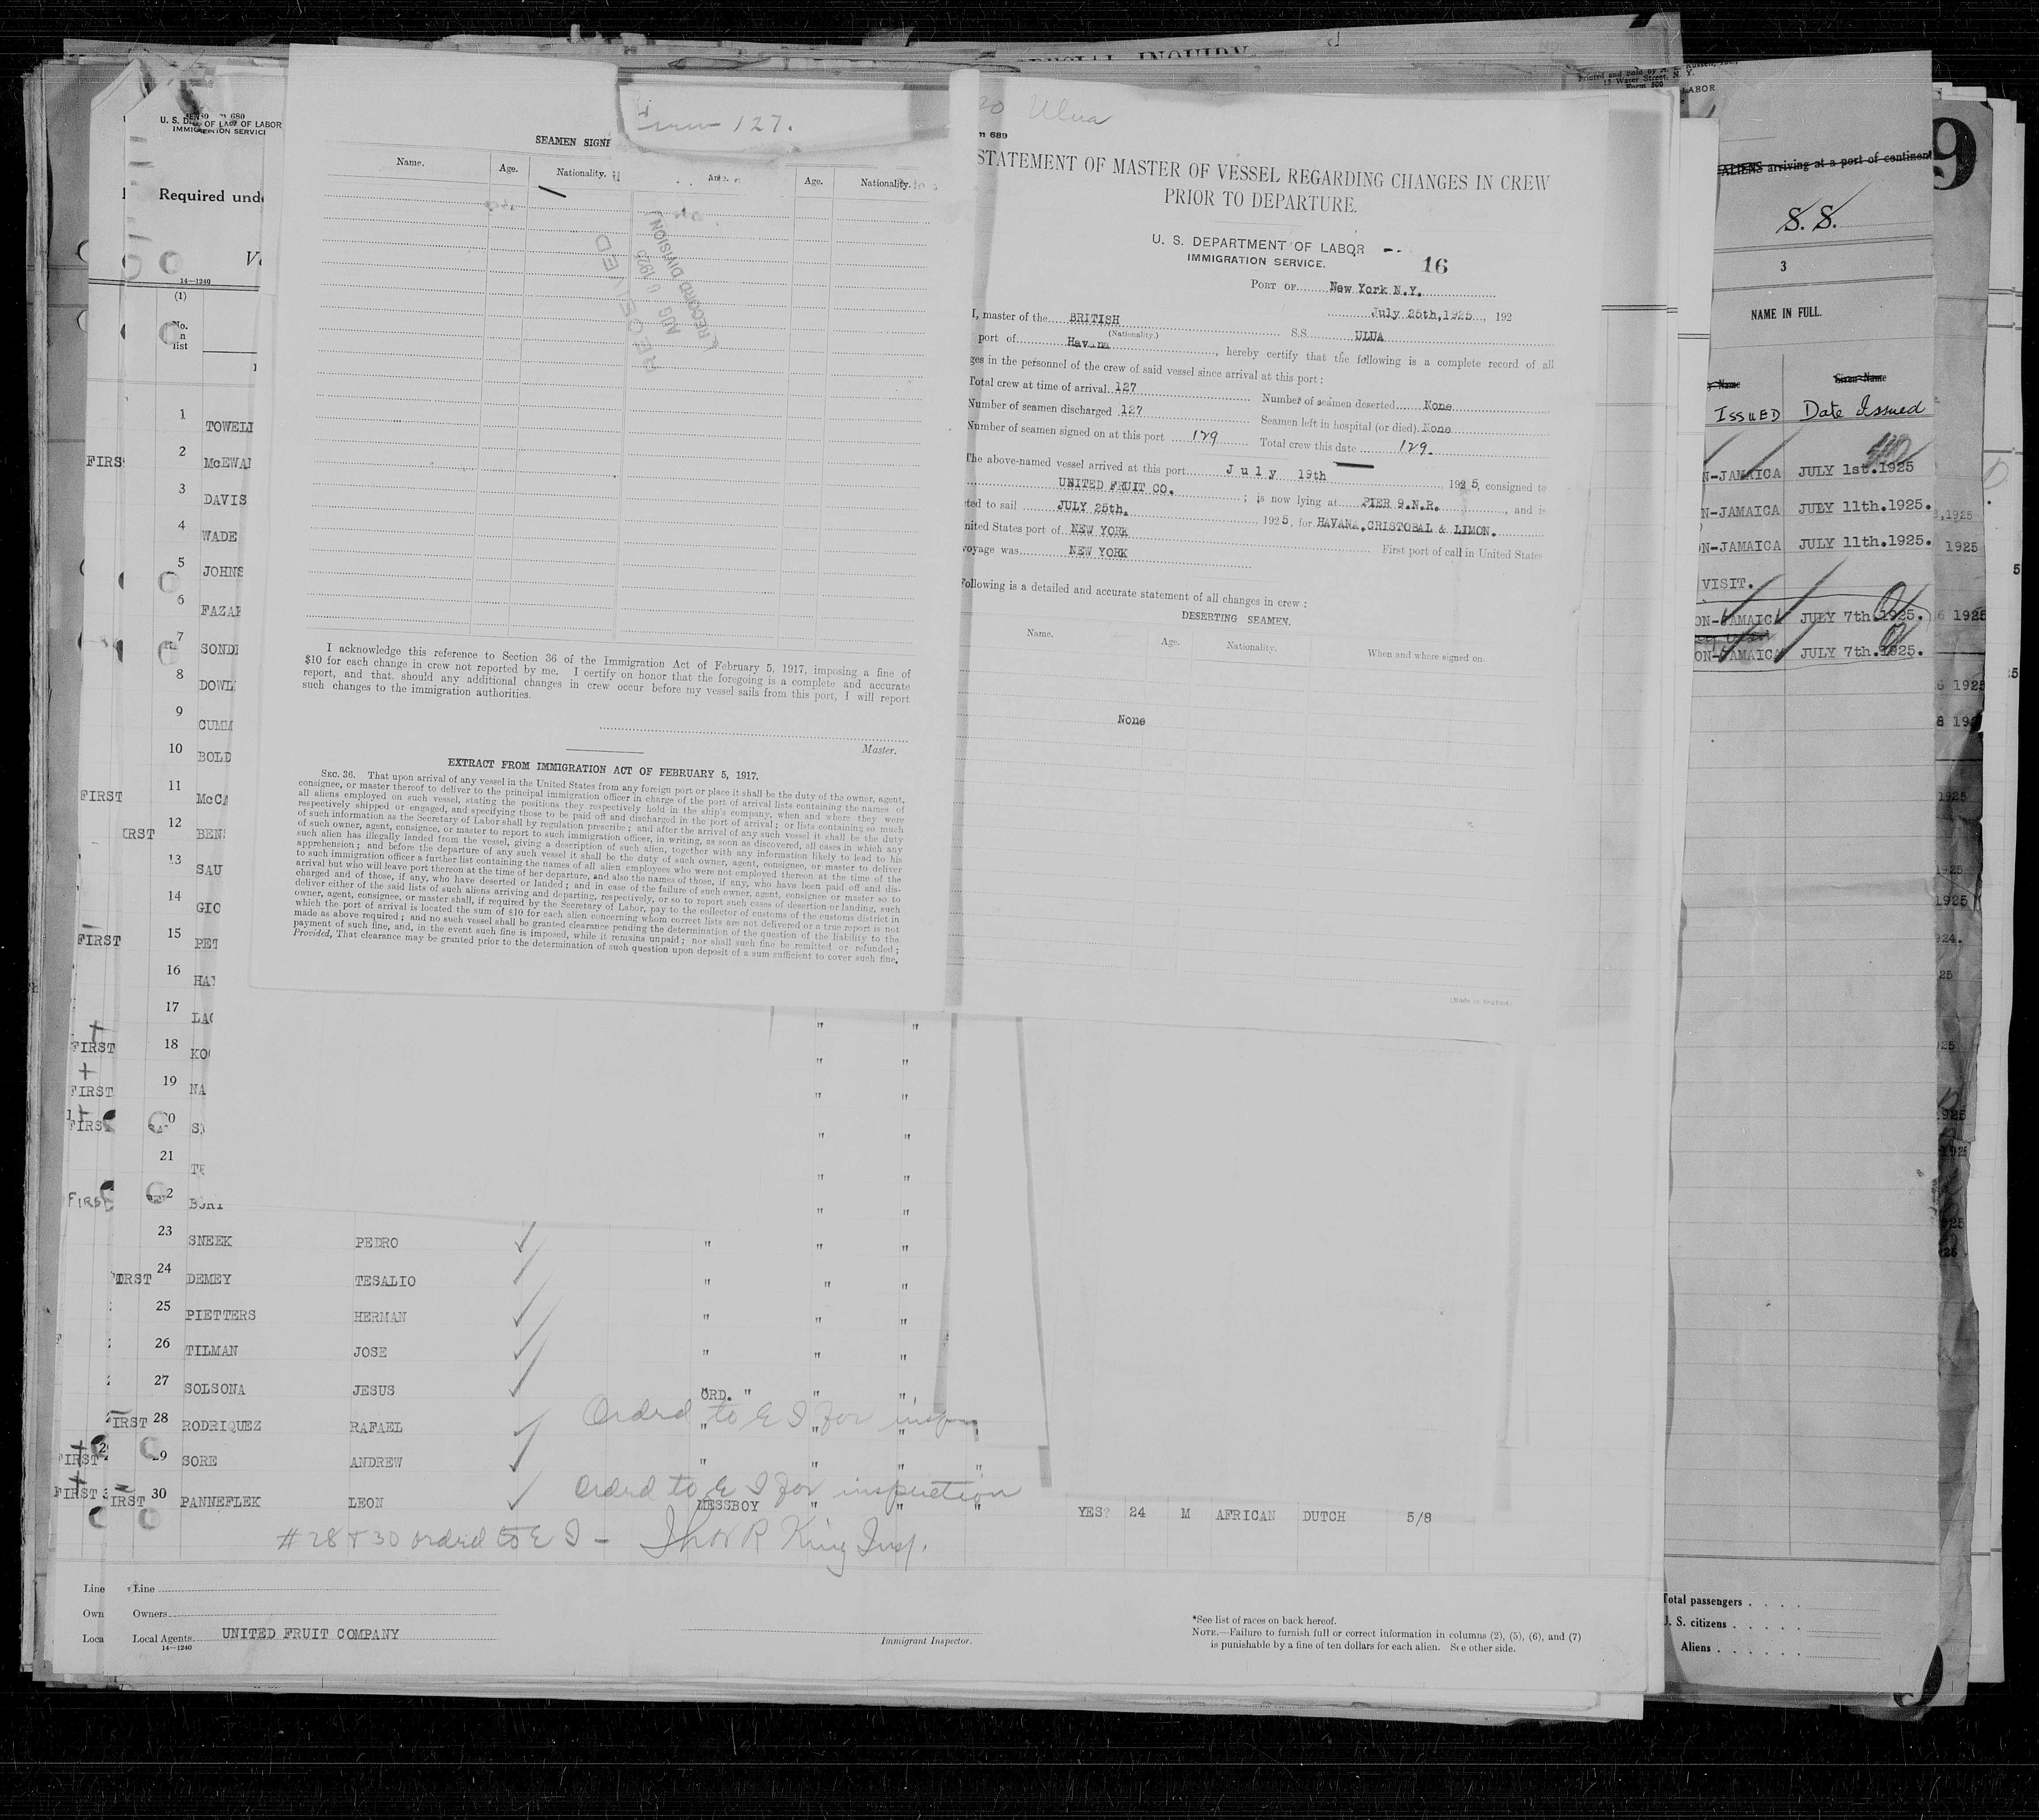 SPECIAL INQUIRY
U. S. D OF LABOR
IMMIGRATION SERVICE
Required unde
14—1240
(1)
No.
list
1 TOWELL
2 McEWAN
3 DAVIS
4 WADE
5 JOHNS
6 FAZAR
7 SONDE
8 DOWL
9 CUMM
10 BOLD
11 McCA
12 BENS
13 SAU
14 GIO
15 PET
16 HAT
17 LAC
18 KO
19 NA
20 S
21 TR
22
FIRST
FIRST
IRST
FIRST
FIRST
FIRST
FIRST
FIRST
127.
SEAMEN SIGN
Name. Age. Nationality. Age. Nationality.
RECEIVED
AUG 6 1925
RECORD DIVISION
I acknowledge this reference to Section 36 of the Immigration Act of February 5, 1917, imposing a fine of
$10 for each change in crew not reported by me. I certify on honor that the foregoing is a complete and accurate
report, and that. should any additional changes in crew occur before my vessel sails from this port, I will report
such changes to the immigration authorities.
Master.
EXTRACT FROM IMMIGRATION ACT OF FEBRUARY 5, 1917.
SEC. 36. That upon arrival of any vessel in the United States from any foreign port or place it shall be the duty of the owner, agent,
consignee, or master thereof to deliver to the principal immigration officer in charge of the port of arrival lists containing the names of
all aliens employed on such vessel, stating the positions they respectively hold in the ship's company, when and where they were
respectively shipped or engaged, and specifying those to be paid off and discharged in the port of arrival; or lists containing so much
of such information as the Secretary of Labor shall by regulation prescribe; and after the arrival of any such vessel it shall be the duty
of such owner, agent, consignee, or master to report to such immigration officer, in writing, as soon as discovered, all cases in which any
such alien has illegally landed from the vessel, giving a description of such alien, together with any information likely to lead to his
apprehension; and before the departure of any such vessel it shall be the duty of such owner, agent, consignee, or master to deliver
to such immigration officer a further list containing the names of all alien employees who were not employed thereon at the time of the
arrival but who will leave port thereon at the time of her departure, and also the names of those, if any, who have been paid off and dis-
charged and of those, if any, who have deserted or landed; and in case of the failure of such owner, agent, consignee or master so to
deliver either of the said lists of such aliens arriving and departing, respectively, or so to report such cases of desertion or landing, such
owner, agent, consignee, or master shall, if required by the Secretary of Labor, pay to the collector of customs of the customs district in
which the port of arrival is located the sum of $10 for each alien concerning whom correct lists are not delivered or a true report is not
made as above required; and no such vessel shall be granted clearance pending the determination of the question of the liability to the
payment of such fine, and, in the event such fine is imposed, while it remains unpaid; nor shall such fine be remitted or refunded;
Provided, That clearance may be granted prior to the determination of such question upon deposit of a sum sufficient to cover such fine.
20 Ulua
m 689
STATEMENT OF MASTER OF VESSEL REGARDING CHANGES IN CREW
PRIOR TO DEPARTURE.
U. S. DEPARTMENT OF LABOR
IMMIGRATION SERVICE.
16
PORT OF New York N.Y.
July 25th,1925, 192
I, master of the BRITISH S.S. ULUA
(Nationality.)
port of Havana, hereby certify that the following is a complete record of all
ges in the personnel of the crew of said vessel since arrival at this port:
Total crew at time of arrival 127 Number of seamen deserted None
Number of seamen discharged 127 Seamen left in hospital (or died). None
Number of seamen signed on at this port 129 Total crew this date 129.
The above-named vessel arrived at this port July 19th, 1925, consigned to
UNITED FRUIT CO.; is now lying at PIER 9.N.R., and is
ted to sail JULY 25th. 1925, for HAVANA.CRISTOBAL & LIMON.
nited States port of NEW YORK First port of call in United States
voyage was NEW YORK
Following is a detailed and accurate statement of all changes in crew:
DESERTING SEAMEN.
Name. Age. Nationality. When and where signed on.
None
(Made in England)
23 SNEEK PEDRO " " "
IRST 24 DEMEY TESALIO " " "
25 PIETTERS HERMAN " " "
26 TILMAN JOSE " " "
27 SOLSONA JESUS ORD. " " "
Ordrd to E I for inspn
IRST 28 RODRIQUEZ RAFAEL " " "
FIRST 29 SORE ANDREW " " " "
Ordrd to E I for inspection
FIRST IRST 30 PANNEFLEK LEON MESSBOY " " " YES? 24 M AFRICAN DUTCH 5/8
#28 & 30 ordrd to E I – Thos R King Insp.
Line Line
Own Owners
Loca Local Agents UNITED FRUIT COMPANY
14—1240
Immigrant Inspector.
*See list of races on back hereof.
NOTE.—Failure to furnish full or correct information in columns (2), (5), (6), and (7)
is punishable by a fine of ten dollars for each alien. See other side.
LABOR
ALIENS arriving at a port of continent
9
S. S.
3
NAME IN FULL.
Name Given Name
ISSUED Date Issued
N-JAMAICA JULY 1st.1925
N-JAMAICA JULY 11th.1925.
ON-JAMAICA JULY 11th.1925.
VISIT.
ON-JAMAICA JULY 7th.1925.
ON-JAMAICA JULY 7th.1925.
Total passengers
U. S. citizens
Aliens